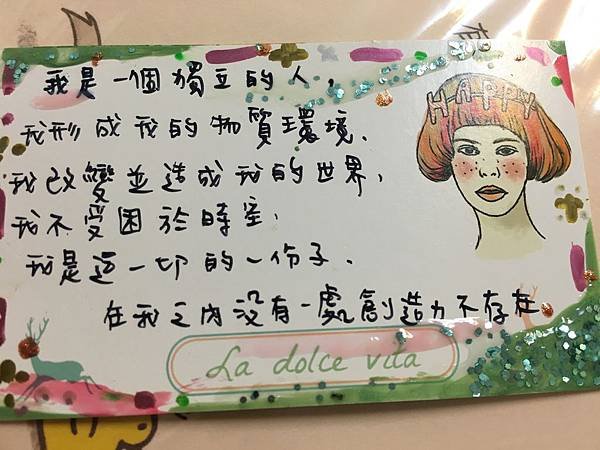 我是一個獨立的人，
HAPPY
我形成我的物質環境、
我改變並造成我的世界，
我不受困於時空，
我是這一切的一份子、
在我之內沒有一處創造力不存在。
La dolce vita